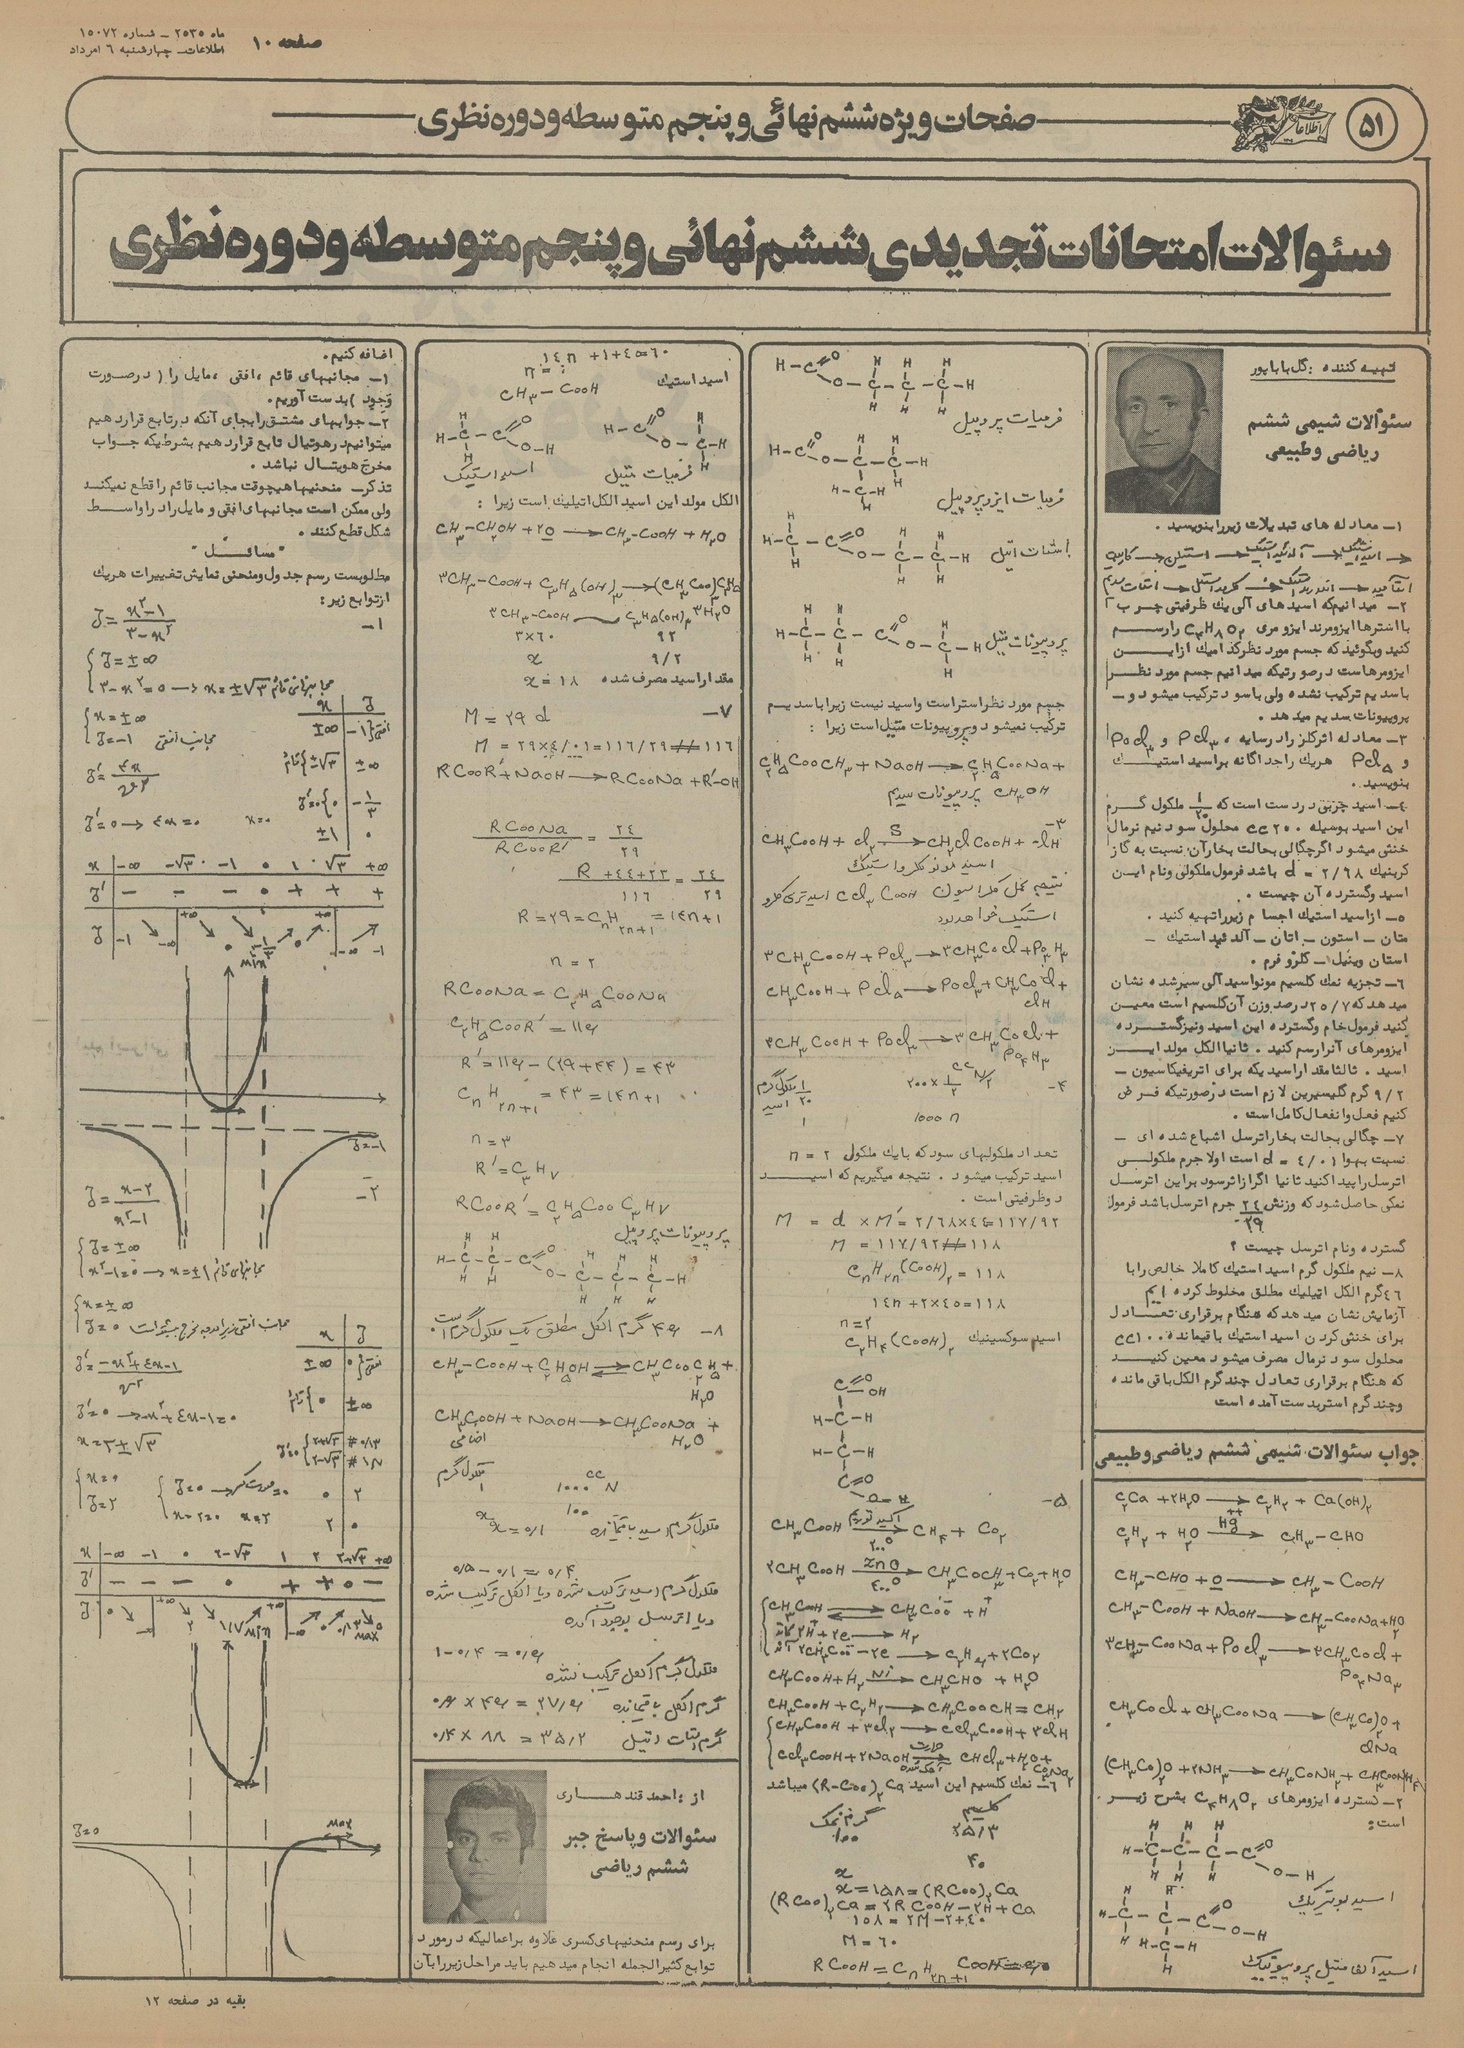 صفحه ۱۰
ماه ۲۵۳۵ – شماره ۱۵۰۷۲
اطلاعات – چهارشنبه ۶ امرداد
۵۱
اطلاعات
صفحات ویژه ششم نهائی و پنجم متوسطه و دوره نظری
سئوالات امتحانات تجدیدی ششم نهائی و پنجم متوسطه و دوره نظری
تهیه کننده : گل باباپور
سئوالات شیمی ششم
ریاضی و طبیعی
۱– معادله های تبدیلات زیر را بنویسید .
۲– میدانیم که اسیدهای آلی یک ظرفیتی چرب
با استرها ایزومرند ایزومری C₄H₈O₂ را رسم
کنید و بگوئید که جسم مورد نظر کدامیک از این
ایزومرهاست در صورتیکه میدانیم جسم مورد نظر
با سدیم ترکیب نشده ولی با سود ترکیب میشود و –
پروپیونات سدیم میدهد .
۳– معادله اثر کلر در سایه ، PCl₃ و POCl₃
و PCl₅ هریک را جداگانه بر اسید استیک
بنویسید .
۴– اسید چربی در دست است که ۱/۲۰ ملکول گرم
این اسید بوسیله ۲۰۰ cc محلول سود نیم نرمال
خنثی میشود اگر چگالی بحالت بخار آن نسبت به گاز
کربنیک d = ۲/۶۸ باشد فرمول ملکولی و نام این
اسید و گسترده آن چیست .
۵– از اسید استیک اجسام زیر را تهیه کنید .
متان – استون – اتان – آلدئید استیک –
استات وینیل – کلروفرم .
۶– تجزیه نمک کلسیم مونواسید آلی سیر شده نشان
میدهد که ۲۵/۷ درصد وزن آن کلسیم است معین
کنید فرمول خام و گسترده این اسید و نیز گسترده
ایزومرهای آنرا رسم کنید . ثانیا الکل مولد این
اسید . ثالثا مقدار اسیدیکه برای اتریفیکاسیون –
۹/۲ گرم گلیسیرین لازم است در صورتیکه فرض
کنیم فعل و انفعال کامل است .
۷– چگالی بحالت بخار اترسل اشباع شده ای –
نسبت بهوا d = ۴/۰۱ است اولا جرم ملکولی
اترسل را پیدا کنید ثانیا اگر از اثر سود بر این اترسل
نمکی حاصل شود که وزنش ۲۴/۲۹ جرم اترسل باشد فرمول
گسترده و نام اترسل چیست ؟
۸– نیم ملکول گرم اسید استیک کاملا خالص را با
۴۶ گرم الکل اتیلیک مطلق مخلوط کرده ایم
آزمایش نشان میدهد که هنگام برقراری تعادل
برای خنثی کردن اسید استیک باقیمانده ۱۰۰ cc
محلول سود نرمال مصرف میشود معین کنید
که هنگام برقراری تعادل چند گرم الکل باقی مانده
و چند گرم استر بدست آمده است
جواب سئوالات شیمی ششم ریاضی و طبیعی
C₂Ca + ۲H₂O → C₂H₂ + Ca(OH)₂
C₂H₂ + H₂O → CH₃–CHO
CH₃–CHO + O → CH₃–COOH
CH₃–COOH + NaOH → CH₃–COONa + H₂O
۳CH₃–COONa + POCl₃ → ۳CH₃COCl +
PO₄Na₃
CH₃COCl + CH₃COONa → (CH₃CO)₂O +
ClNa
(CH₃CO)₂O + ۲NH₃ → CH₃CONH₂ + CH₃COONH₄
۲– گسترده ایزومرهای C₄H₈O₂ بشرح زیر
است :
اسید بوتیریک
اسید آلفا متیل پروپیونیک
فرمیات پروپیل
فرمیات ایزوپروپیل
استات اتیل
پروپیونات متیل
جسم مورد نظر استر است و اسید نیست زیرا با سدیم
ترکیب نمیشود و پروپیونات متیل است زیرا :
C₂H₅COOCH₃ + NaOH → C₂H₅COONa +
CH₃OH پروپیونات سدیم
۳–
CH₃COOH + Cl₂ → CH₂ClCOOH + ClH
اسید مونوکلرواستیک
نتیجه عمل کلراسیون CCl₃COOH اسید تری کلرو
استیک خواهد بود
۳CH₃COOH + PCl₃ → ۳CH₃COCl + PO₃H₃
CH₃COOH + PCl₅ → POCl₃ + CH₃COCl +
ClH
۳CH₃COOH + POCl₃ → ۳CH₃COCl +
PO₄H₃
۴–
تعداد ملکولهای سود که با یک ملکول n = ۲
اسید ترکیب میشود . نتیجه میگیریم که اسید
دو ظرفیتی است .
M = d × M′ = ۲/۶۸×۴۴=۱۱۷/۹۲
M = ۱۱۷/۹۲ # ۱۱۸
CₙH₂ₙ(COOH)₂ = ۱۱۸
۱۴n+۲×۴۵=۱۱۸
n=۲
اسید سوکسینیک C₂H₄(COOH)₂
۵–
CH₃COOH → CH₄ + CO₂
۲CH₃COOH → CH₃COCH₃ + CO₂ + H₂O
CH₃COOH ⇌ CH₃COO⁻ + H⁺
۲H⁺ + ۲e → H₂
۲CH₃COO⁻ – ۲e → C₂H₆ + ۲CO₂
CH₃COOH + H₂ → CH₃CHO + H₂O
CH₃COOH + C₂H₂ → CH₃COOCH=CH₂
CH₃COOH + ۳Cl₂ → CCl₃COOH + ۳ClH
CCl₃COOH + ۲NaOH → CHCl₃ + H₂O +
CO₃Na₂
۶– نمک کلسیم این اسید (R–COO)₂Ca میباشد
گرم نمک کلسیم
۱۰۰ ۲۵/۳
x ۴۰
x = ۱۵۸ = (RCOO)₂Ca
(RCOO)₂Ca = ۲RCOOH – ۲H + Ca
۱۵۸ = ۲M–۲+۴۰
M = ۶۰
RCOOH = CₙH₂ₙ₊₁COOH = ۶۰
۱۴n +۱+۴۵=۶۰
n = ۱
اسید استیک
CH₃–COOH
فرمیات متیل اسید استیک
الکل مولد این اسید الکل اتیلیک است زیرا :
CH₃–CH₂OH + ۲O → CH₃–COOH + H₂O
۳CH₃–COOH + C₃H₅(OH)₃ → (CH₃COO)₃C₃H₅
۳H₂O
۳CH₃–COOH C₃H₅(OH)₃
۳×۶۰ ۹۲
x ۹/۲
مقدار اسید مصرف شده x = ۱۸
۷–
M = ۲۹ d
M = ۲۹×۴/۰۱=۱۱۶/۲۹ # ۱۱۶
RCOOR′ + NaOH → RCOONa + R′–OH
RCOONa / RCOOR′ = ۲۴ / ۲۹
R +۴۴+۲۳ / ۱۱۶ = ۲۴ / ۲۹
R = ۲۹ = CₙH₂ₙ₊₁ = ۱۴n+۱
n = ۲
RCOONa = C₂H₅COONa
C₂H₅COOR′ = ۱۱۶
R′ = ۱۱۶ – (۲۹+۴۴) = ۴۳
CₙH₂ₙ₊₁ = ۴۳ = ۱۴n+۱
n = ۳
R′ = C₃H₇
RCOOR′ = C₂H₅COOC₃H₇
پروپیونات پروپیل
۸– ۴۶ گرم الکل مطلق یک ملکول گرم است .
CH₃–COOH + C₂H₅OH ⇌ CH₃COOC₂H₅ +
H₂O
CH₃COOH + NaOH → CH₃COONa +
اضافی H₂O
ملکول گرم ۱ ۱۰۰۰ cc N
۱۰۰
ملکول گرم اسید باقیمانده x = ۰/۱
۰/۵ – ۰/۱ = ۰/۴
ملکول گرم اسید ترکیب شده و یا الکل ترکیب شده
و یا اترسل بوجود آمده
۱–۰/۴ = ۰/۶
ملکول گرم الکل ترکیب نشده
گرم الکل باقیمانده ۰/۶ × ۴۶ = ۲۷/۶
گرم استات اتیل ۰/۴ × ۸۸ = ۳۵/۲
از : احمد قندهاری
سئوالات و پاسخ جبر
ششم ریاضی
برای رسم منحنیهای کسری علاوه بر اعمالیکه در مورد
توابع کثیرالجمله انجام میدهیم باید مراحل زیر را بآن
اضافه کنیم .
۱– مجانبهای قائم ، افقی ، مایل را ( در صورت
وجود ) بدست آوریم .
۲– جوابهای مشتق را بجای آنکه در تابع قرار دهیم
میتوانیم در هوپیتال تابع قرار دهیم بشرطیکه جواب
مخرج هوپیتال نباشد .
تذکر – منحنیها هیچوقت مجانب قائم را قطع نمیکنند
ولی ممکن است مجانبهای افقی و مایل را در اواسط
شکل قطع کنند .
"مسائل"
مطلوبست رسم جدول و منحنی نمایش تغییرات هریک
از توابع زیر :
۱– y = x²–۱ / ۳–x²
y=±∞
۳–x²=۰ → x=±√۳ مجانبهای قائم
x=±∞
y=–۱ مجانب افقی
y′=۰ → ۴x=۰ x=۰
x –∞ –√۳ –۱ ۰ ۱ √۳ +∞
min
y=–۱
۲– y = x–۲ / x²–۱
y=±∞
x²–۱=۰ → x=±۱ مجانبهای قائم
x=±∞
y=۰
y′= –x²+۴x–۱
y′=۰ → –x²+۴x–۱=۰
x=۲±√۳
x=۰
y=۲
x –∞ –۱ ۰ ۲–√۳ ۱ ۲ ۲+√۳ +∞
y=۰
Max
بقیه در صفحه ۱۲